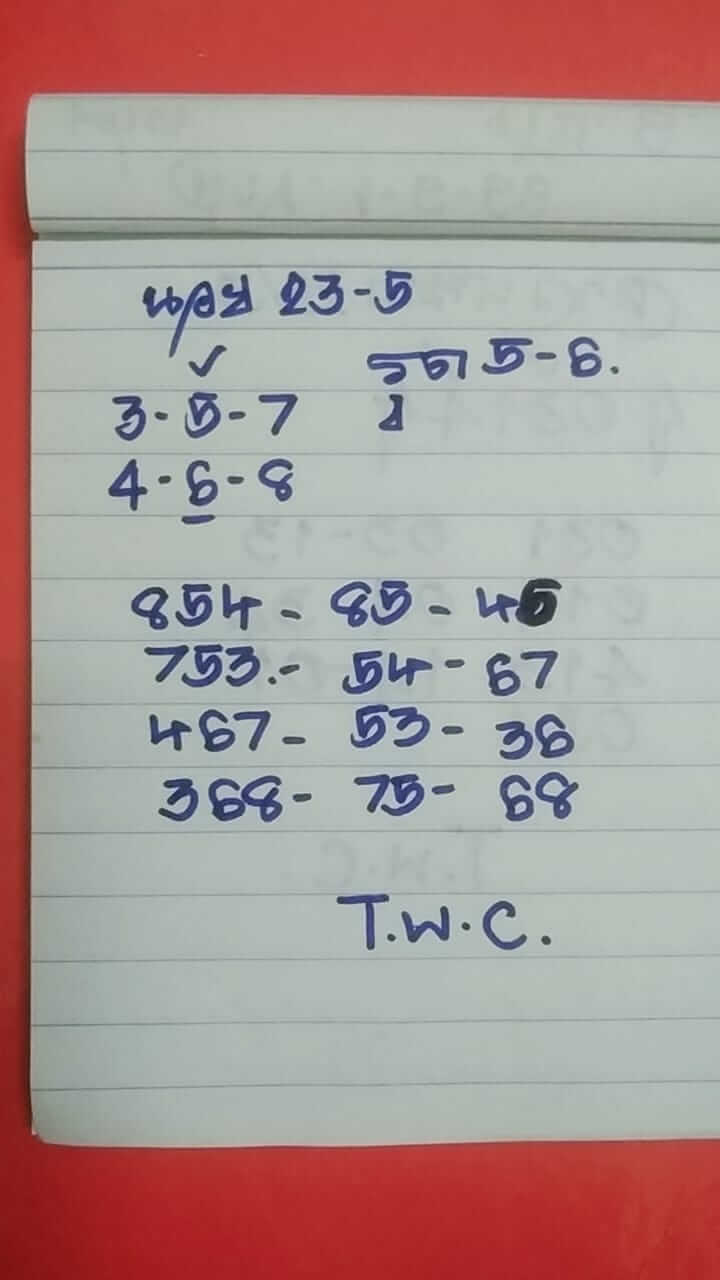 นอย 23-5
5-6.
3-5-7
4-6-8
854 - 85 - 45
753.- 54 - 67
467 - 53 - 36
368 - 75 - 68
T.W.C.